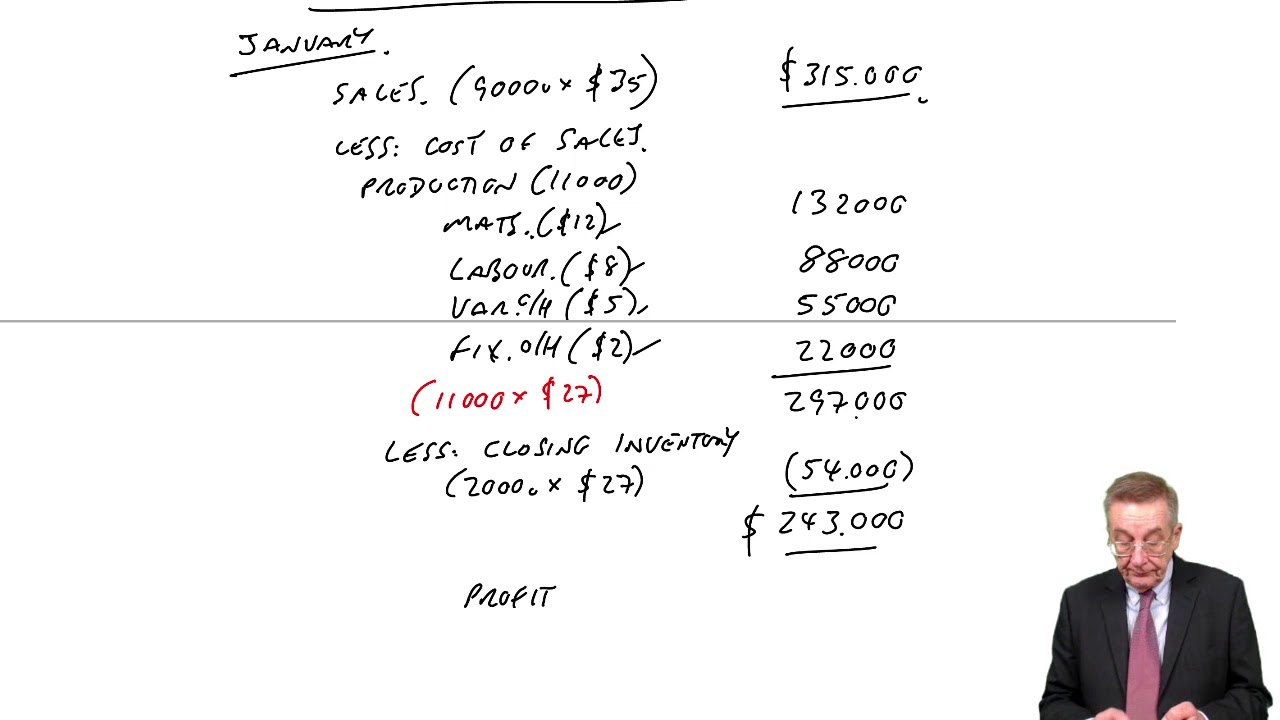 JANUARY.
SALES. (9000 × $35) $315.000
LESS: COST OF SALES.
PRODUCTION (11000)
MATS. ($12) 132000
LABOUR. ($8) 88000
VAR. O/H ($5) 55000
FIX. O/H ($2) 22000
(11000 × $27) 297.000
LESS: CLOSING INVENTORY
(2000 × $27) (54.000)
$ 243.000
PROFIT